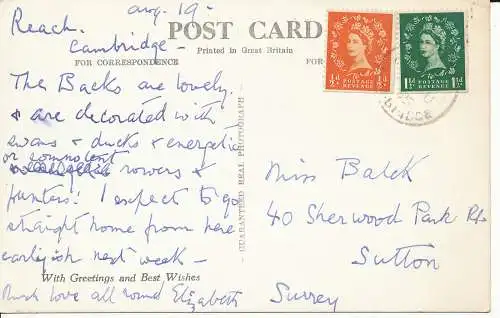 Aug. 19 -
Reach.
Cambridge -
POST CARD
Printed in Great Britain
FOR CORRESPONDENCE
FOR
The Backs are lovely
& are decorated with
swans & ducks & energetic
or somnolent
rowers &
punters. I expect to go
straight home from here
earlyish next week -
With Greetings and Best Wishes
Much love all round Elizabeth
GUARANTEED REAL PHOTOGRAPH
½d ½d
POSTAGE REVENUE
1½d 1½d
POSTAGE REVENUE
Miss Balck
40 Sherwood Park Rd
Sutton
Surrey